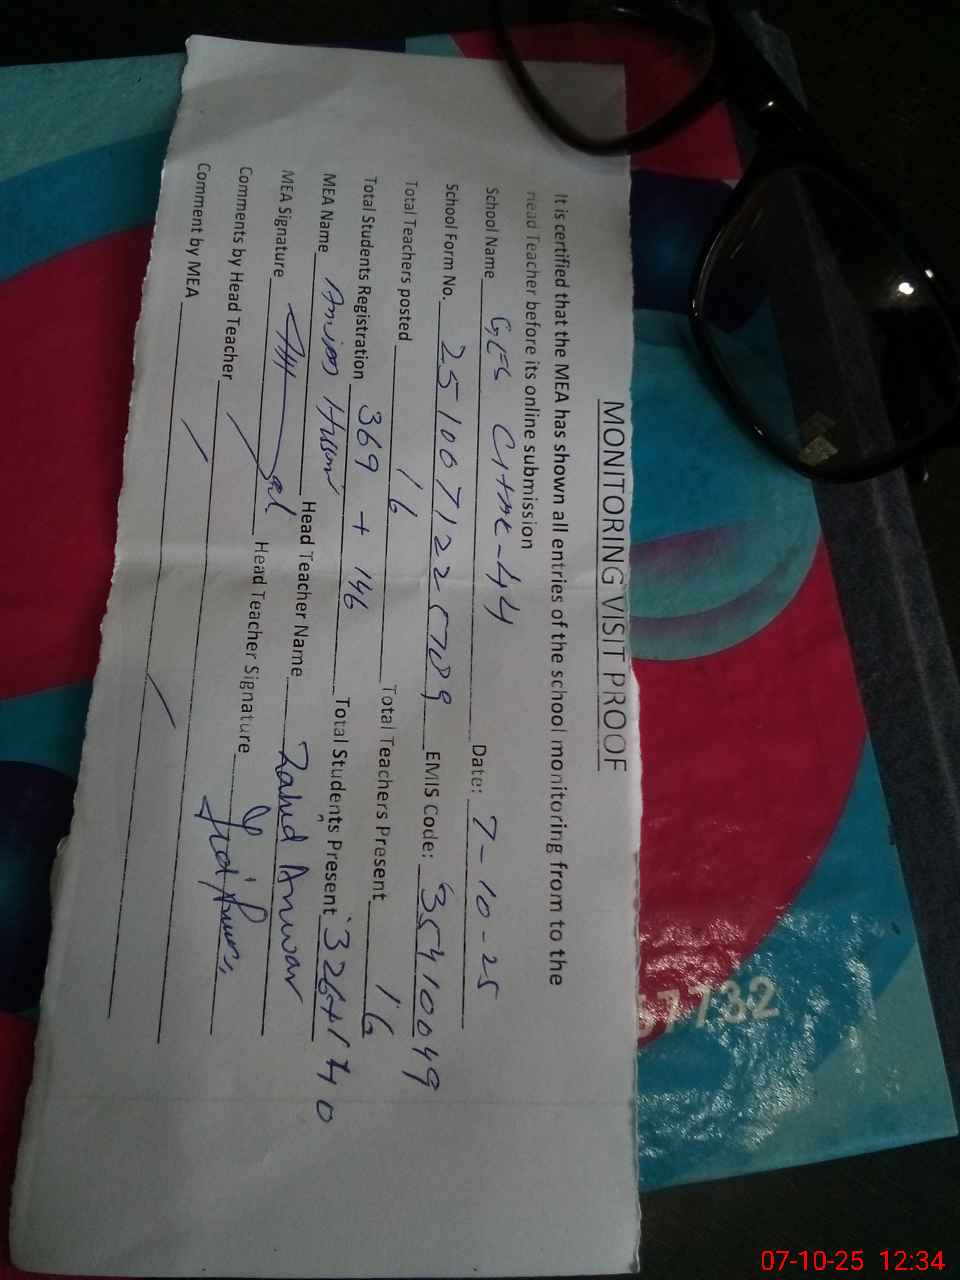 MONITORING VISIT PROOF
It is certified that the MEA has shown all entries of the school monitoring from to the
Head Teacher before its online submission
School Name GES Chak-44 Date: 7-10-25
School Form No. 2510071225789 EMIS Code: 35410049
Total Teachers posted 16 Total Teachers Present 16
Total Students Registration 369 + 146 Total Students Present 326+140
MEA Name Hussain Head Teacher Name Zahid Anwar
MEA Signature Head Teacher Signature
Comments by Head Teacher
Comment by MEA
7732
07-10-25 12:34